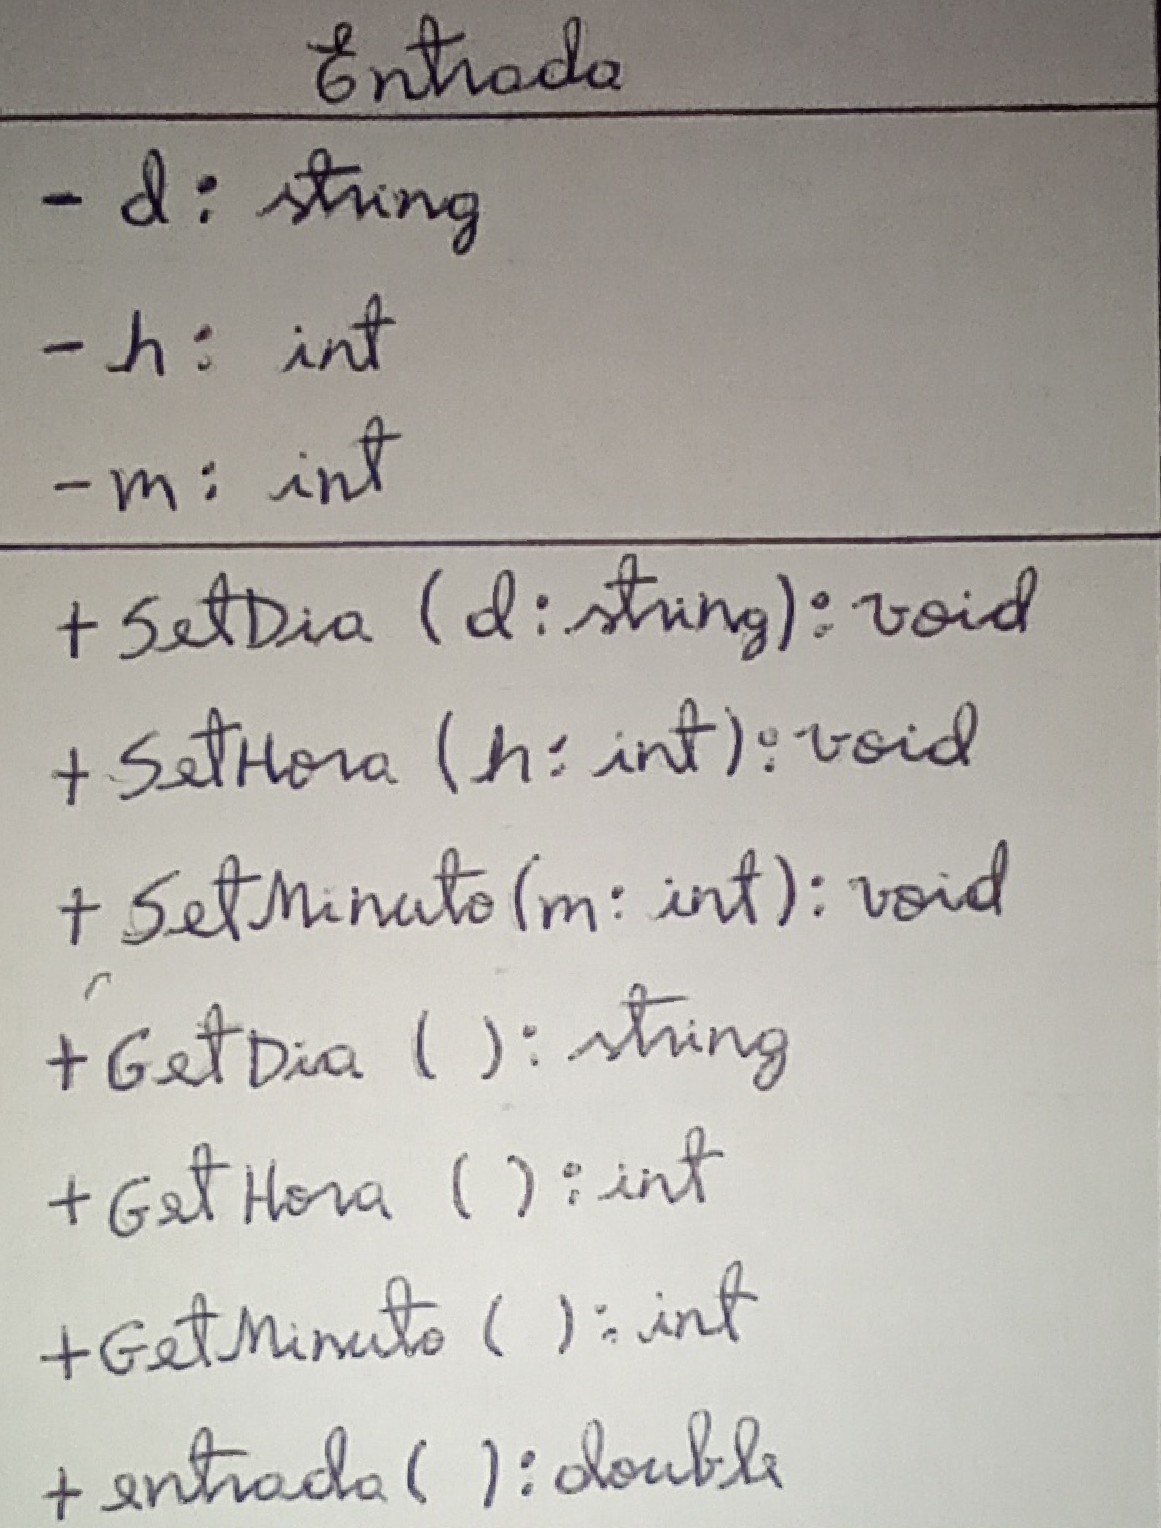 Entrada
- d: string
- h: int
- m: int
+ SetDia (d: string): void
+ SetHora (h: int): void
+ SetMinuto (m: int): void
+ GetDia ( ): string
+ GetHora ( ): int
+ GetMinuto ( ): int
+ entrada ( ): double